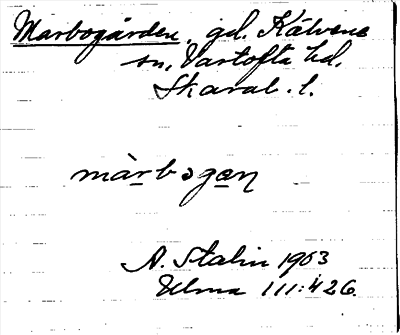 Marbogården, gd. Kälvene
sn, Vartofta hd.
Skarab. l.
màrbɔgaɳ
A. Stalin 1903
Ulma 111:426.